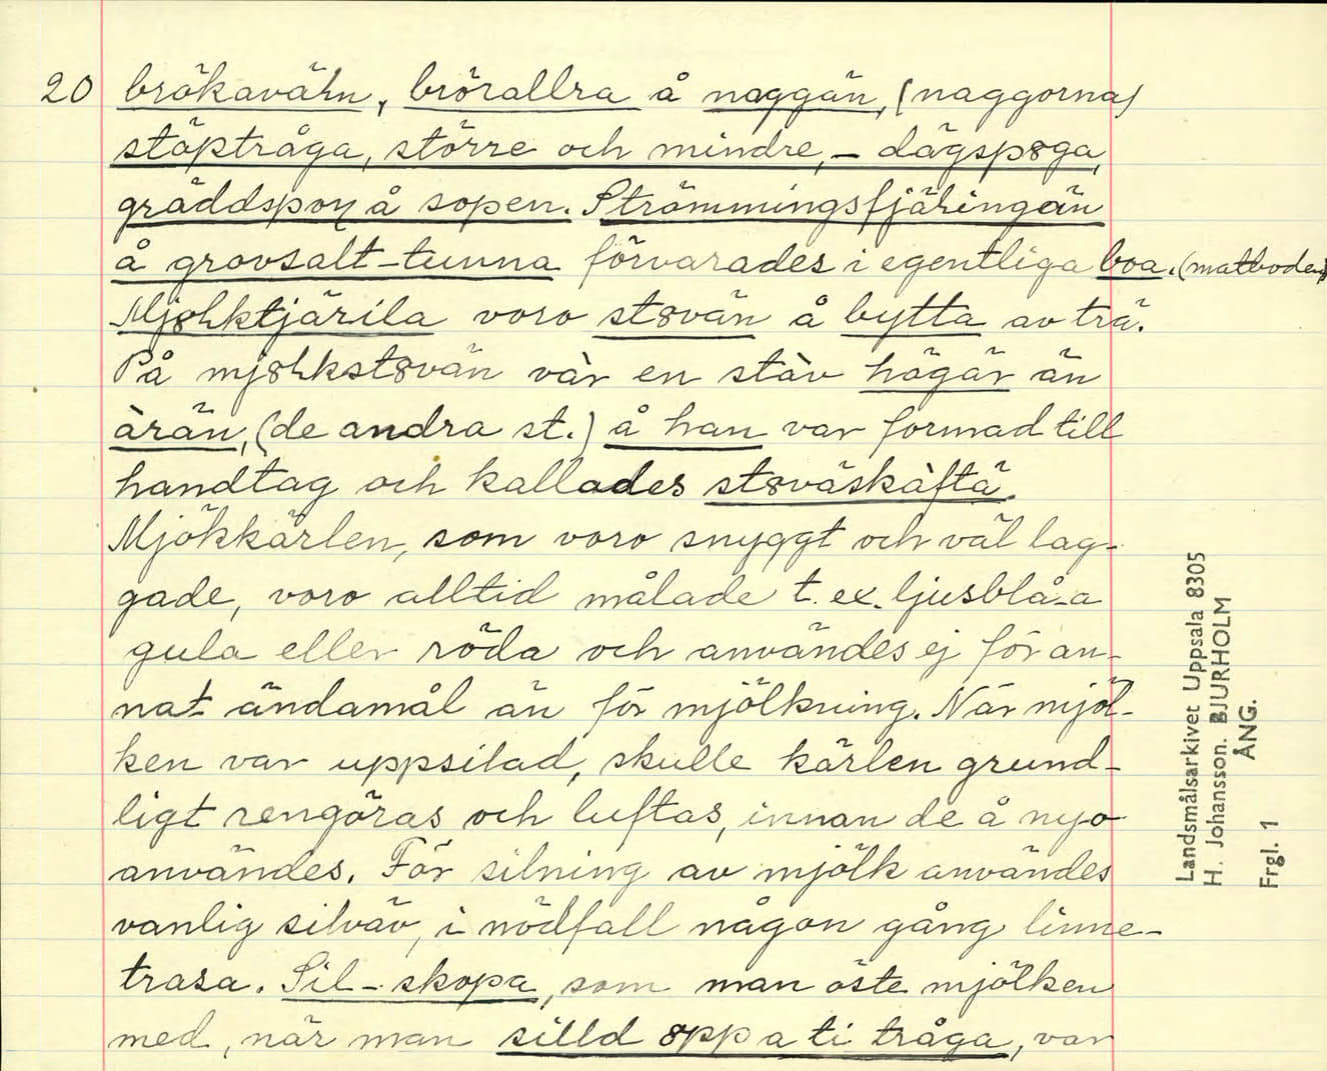 20 brökavähn, brörallra å naggän, (naggorna)
stöptråga, större och mindre, - dägsp8ga,
gräddspoŋ å sopen. Strömmingsfjäringän
å grovsalt-tunna förvarades i egentliga boa. (matboden)
Mj8hktjärila voro st8vän å bytta av trä.
På mj8hkst8vän vàr en stàv högär än
àrän, (de andra st.) å han var formad till
handtag och kallades st8väskàftä.
Mjökkärlen, som voro snyggt och väl lag-
gade, voro alltid målade t. ex. ljusblå-a
gula eller röda och användes ej för an-
nat ändamål än för mjölkning. När mjöl-
ken var uppsilad, skulle kärlen grund-
ligt rengöras och luftas, innan de å nyo
användes. För silning av mjölk användes
vanlig silväv, i nödfall någon gång linne-
trasa. Sil-skopa, som man öste mjölken
med, när man silld 8pp a ti tråga, var
Landsmålsarkivet Uppsala 8305
H. Johansson. BJURHOLM
ÅNG.
Frgl. 1